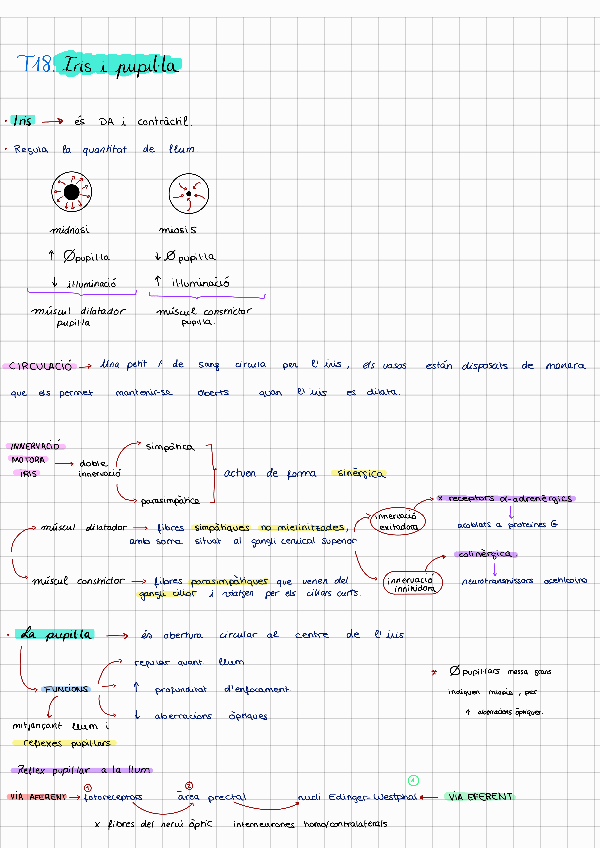 T18. Iris i pupil·la
· Iris → és DA i contràctil.
· Regula la quantitat de llum
midriasi miosis
↑ Ø pupil·la ↓ Ø pupil·la
↓ il·luminació ↑ il·luminació
múscul dilatador múscul constrictor
pupil·la pupil·la.
CIRCULACIÓ → Una petit % de sang circula per l'iris, els vasos están disposats de manera
que els permet mantenir-se oberts quan l'iris es dilata.
INNERVACIÓ
MOTORA
IRIS → doble
innervació
simpàtica
parasimpàtica
actuen de forma sinèrgica
múscul dilatador → fibres simpàtiques no mielinitzades,
amb soma situat al gangli cervical superior
innervació
exitadora
* receptors α-adrenèrgics
acoblats a proteïnes G
múscul constrictor → fibres parasimpàtiques que venen del
gangli ciliar i viatgen per els ciliars curts.
innervació
inhibidora
colinèrgica
neurotransmissors acetilcolina
· La pupil·la → és obertura circular al centre de l'iris
FUNCIONS
regular quant llum
↑ profunditat d'enfocament
↓ aberracions òptiques
mitjançant llum i
reflexes pupil·lars
* Ø pupil·lars massa grans
indiquen miopia, per
↑ aberracions òptiques.
Reflex pupil·lar a la llum
VIA AFERENT → ① fotoreceptors ② àrea prectal nucli Edinger-Westphal ① ← VIA EFERENT
x fibres del nervi òptic interneurones homo/contralaterals